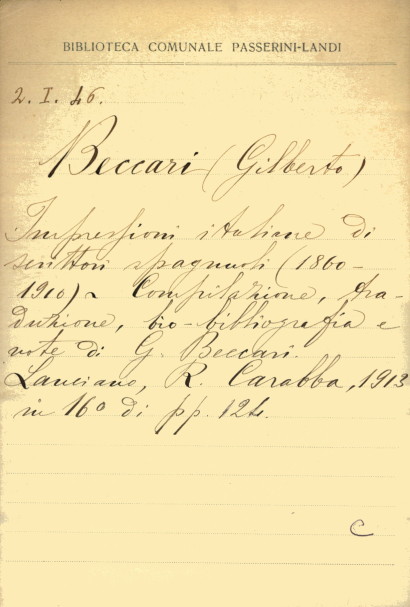 BIBLIOTECA COMUNALE PASSERINI-LANDI
2. I. 46.
Beccari (Gilberto)
Impressioni italiane di
scrittori spagnuoli (1860-
1910) ~ Compilazione, tra-
duzione, bio-bibliografia e
note di G. Beccari.
Lanciano, R. Carabba, 1913
in 16° di pp. 124.
C